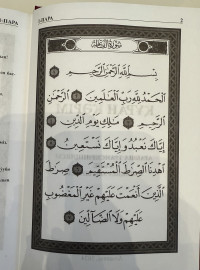 I-ПАРА 2
سورة الفاتحة
بِسْمِ اللَّهِ الرَّحْمَٰنِ الرَّحِيمِ
الْحَمْدُ لِلَّهِ رَبِّ الْعَالَمِينَ الرَّحْمَٰنِ
الرَّحِيمِ مَالِكِ يَوْمِ الدِّينِ
إِيَّاكَ نَعْبُدُ وَإِيَّاكَ نَسْتَعِينُ
اهْدِنَا الصِّرَاطَ الْمُسْتَقِيمَ صِرَاطَ
الَّذِينَ أَنْعَمْتَ عَلَيْهِمْ غَيْرِ الْمَغْضُوبِ
عَلَيْهِمْ وَلَا الضَّالِّينَ